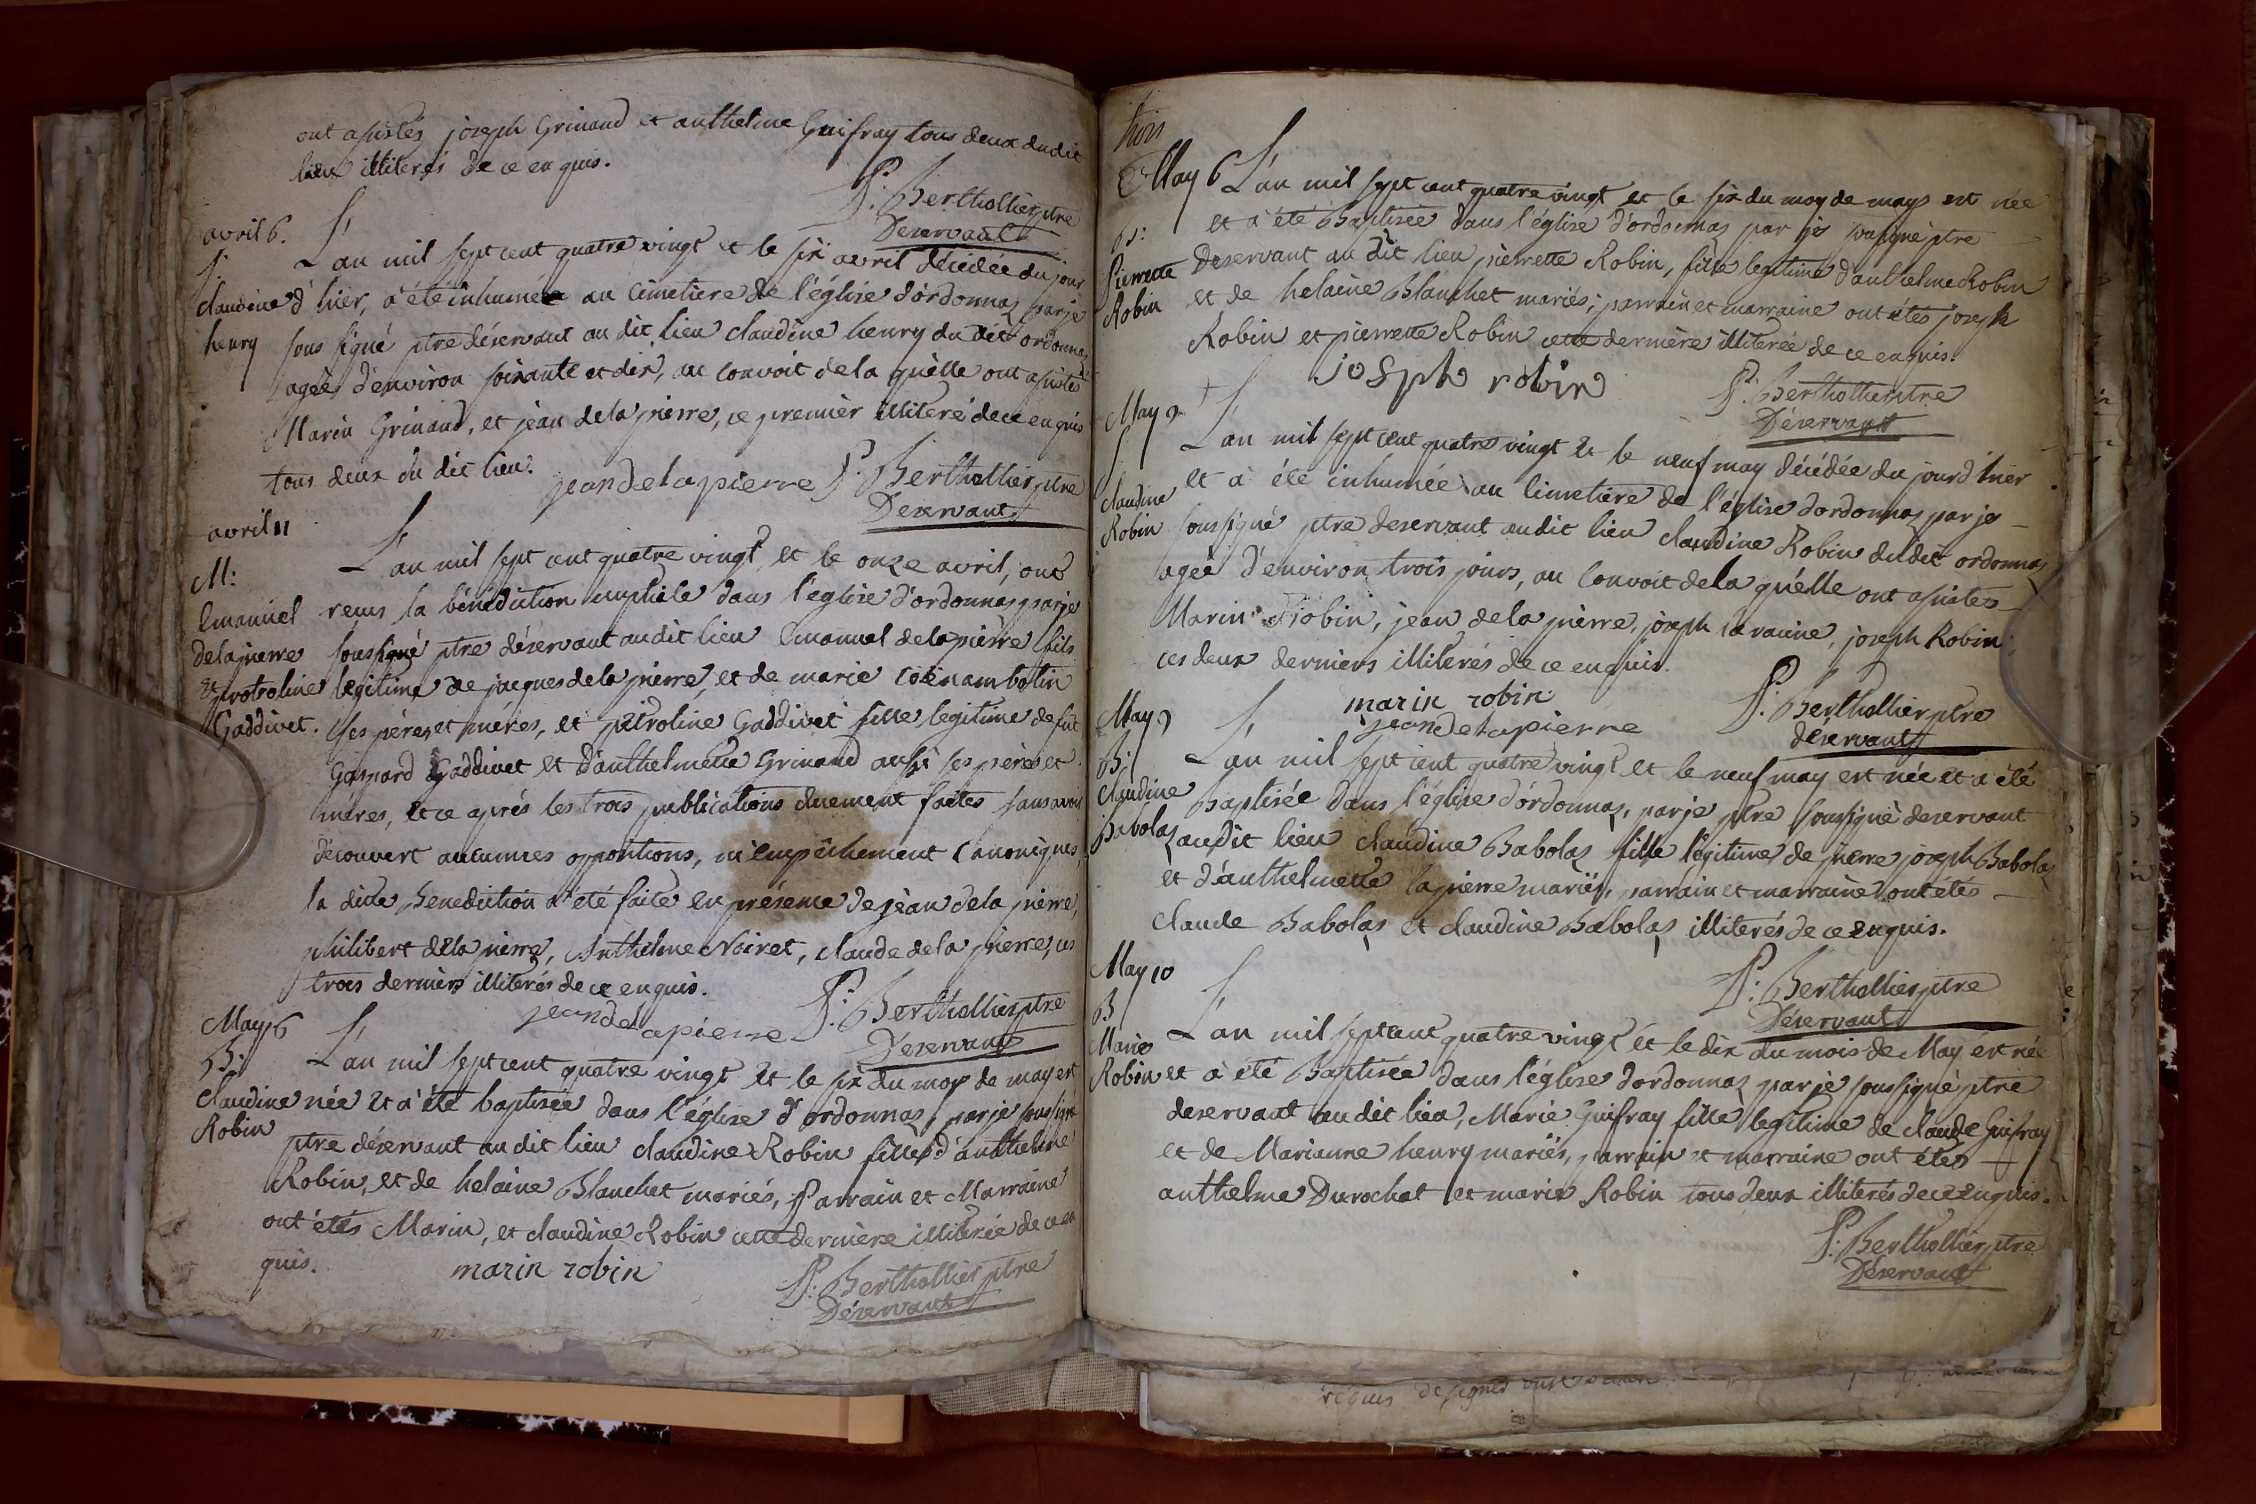 ont asistés joseph Grinand et anthelme Guifray tous deux du dit
lieu illiterés de ce enquis.
P: Berthollier ptre
Deservant
avril 6.
S:
claudine
henry
L'an mil sept cent quatre vingt et le six avril décédée du jour
d'hier, a été inhumée au cimetiere de l'église d'ordonnaz par je
sous signé ptre déservant au dit lieu claudine henry du dit ordonnaz
agée d'environ soixante et dix, au convoit de la quèlle ont asistés
Marin Grinand, et jèan dela pierre, ce premièr illiteré de ce enquis
tous deux du dit lieu.
jean de la pierre P: Berthollier ptre
Deservant
avril 11
M:
Emanuel
delapierre
et petroline
Gaddivet.
L'an mil sept cent quatre vingt et le onze avril, ont
reçus la bénédiction nuptiale dans l'église d'ordonnaz par je
soussigné ptre déservant au dit lieu Emanuel de la pièrre fils
legitime de jacques de la pièrre, et de marie
ses pères et mères, et pétroline Gaddivet fille legitime de fut
Gaspard Gaddivet et d'anthelmette Grinand aussi ses pères et
mères, et ce après les trois publications duement faites sans avoir
découvert aucunnes oppositions, ni empêchement Canoniques,
la dite Benediction a été faite en présence de jèan de la pierre,
philibert de la pierre, Anthelme Noiret, claude de la pierre, ces
trois derniers illiterés de ce enquis.
jean de la pierre P: Berthollier ptre
Deservant
May 6
B:
claudine
Robin
L'an mil sept cent quatre vingt et le six du moy de may est
née et a été baptisée dans l'église d'ordonnaz, par je soussigné
ptre déservant au dit lieu claudine Robin fille d'anthelme
Robin, et de helaine Blanchet mariés, Parrain et Marraine
ont étés Marin, et claudine Robin cette dernière illiterée de ce en
quis.
marin robin
P: Berthollier ptre
Déservant
trois
May 6
B:
Pierrette
Robin
L'an mil sept cent quatre vingt et le six du moy de mays est née
et a été Baptisée dans l'église d'ordonnaz par je soussigné ptre
Deservant au dit lieu pierrette Robin, fille legitime d'anthelme Robin
et de helaine Blanchet mariés; parrain et marraine ont étés joseph
Robin et pierrette Robin cette dernière illiterée de ce enquis.
joseph robin
P: Berthollier ptre
Déservant
May 9
S
claudine
Robin
L'an mil sept cent quatre vingt et le neuf may décédée du jourd'hier
et a été inhumée au cimetière de l'église d'ordonnaz par je
soussigné ptre deservant au dit lieu claudine Robin du dit ordonnaz
agée d'environ trois jours, au convoit de la quèlle ont asistés
Marin Robin, jean de la pierre, joseph la racine, joseph Robin;
ces deux derniers illiterés de ce enquis.
marin robin
jean de la pierre
P: Berthollier ptre
deservant
May 9
B:
claudine
Babolaz
L'an mil sept cent quatre vingt et le neuf may est née et a été
Baptisée dans l'église d'ordonnaz, par je ptre soussigné deservant
au dit lieu claudine Babolaz fille légitime de pierre joseph Babolaz
et d'anthelmette lapierre mariés, parrain et marraine ont étés
claude Babolaz et claudine Babolaz illiterés de ce enquis.
P: Berthollier ptre
Déservant
May 10
B
Marie
Robin
L'an mil sept cent quatre vingt et le dix du mois de May est née
et a été Baptisée dans l'église d'ordonnaz par je soussigné ptre
deservant au dit lieu, Marie Guifray fille legitime de claude Guifray
et de Marianne henry mariés, parrain et marraine ont étés
anthelme Durochat et marie Robin tous deux illiterés de ce enquis.
P: Berthollier ptre
Déservant
requis de signer